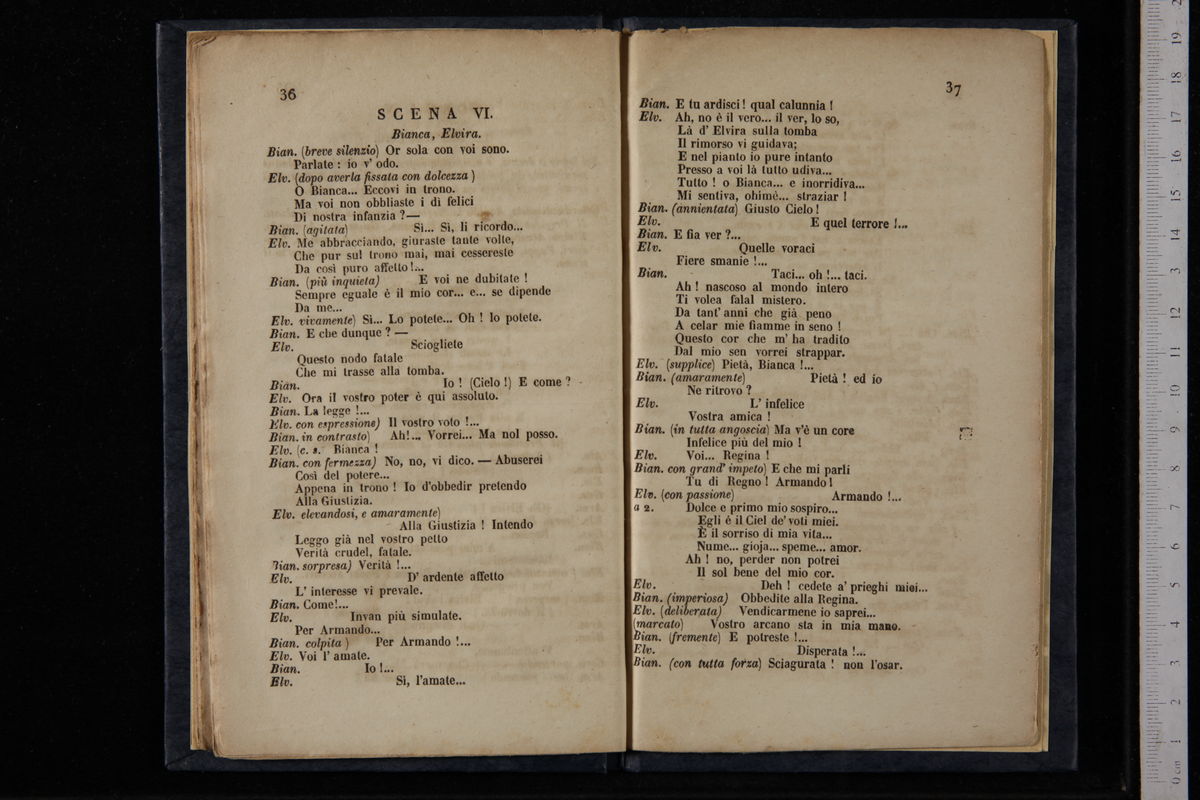 36
SCENA VI.
Bianca, Elvira.
Bian. (breve silenzio) Or sola con voi sono.
Parlate : io v' odo.
Elv. (dopo averla fissata con dolcezza )
O Bianca... Eccovi in trono.
Ma voi non obbliaste i dì felici
Di nostra infanzia ?—
Bian. (agitata) Sì... Sì, li ricordo...
Elv. Me abbracciando, giuraste tante volte,
Che pur sul trono mai, mai cessereste
Da così puro affetto !...
Bian. (più inquieta) E voi ne dubitate !
Sempre eguale è il mio cor... e... se dipende
Da me...
Elv. vivamente) Sì... Lo potete... Oh ! lo potete.
Bian. E che dunque ? —
Elv. Sciogliete
Questo nodo fatale
Che mi trasse alla tomba.
Bian. Io ! (Cielo !) E come ?
Elv. Ora il vostro poter è qui assoluto.
Bian. La legge !...
Elv. con espressione) Il vostro voto !...
Bian. in contrasto) Ah!... Vorrei... Ma nol posso.
Elv. (c. s. Bianca !
Bian. con fermezza) No, no, vi dico. — Abuserei
Così del potere...
Appena in trono ! Io d'obbedir pretendo
Alla Giustizia.
Elv. elevandosi, e amaramente)
Alla Giustizia ! Intendo
Leggo già nel vostro petto
Verità crudel, fatale.
Bian. sorpresa) Verità !...
Elv. D' ardente affetto
L' interesse vi prevale.
Bian. Come!...
Elv. Invan più simulate.
Per Armando...
Bian. colpita ) Per Armando !...
Elv. Voi l' amate.
Bian. Io !...
Elv. Sì, l'amate...
37
Bian. E tu ardisci ! qual calunnia !
Elv. Ah, no è il vero... il ver, lo so,
Là d' Elvira sulla tomba
Il rimorso vi guidava;
E nel pianto io pure intanto
Presso a voi là tutto udiva...
Tutto ! o Bianca... e inorridiva...
Mi sentiva, ohimè... straziar !
Bian. (annientata) Giusto Cielo !
Elv. E quel terrore !...
Bian. E fia ver ?...
Elv. Quelle voraci
Fiere smanie !...
Bian. Taci... oh !... taci.
Ah ! nascoso al mondo intero
Ti volea falal mistero.
Da tant' anni che già peno
A celar mie fiamme in seno !
Questo cor che m' ha tradito
Dal mio sen vorrei strappar.
Elv. (supplice) Pietà, Bianca !...
Bian. (amaramente) Pietà ! ed io
Ne ritrovo ?
Elv. L' infelice
Vostra amica !
Bian. (in tutta angoscia) Ma v'è un core
Infelice più del mio !
Elv. Voi... Regina !
Bian. con grand' impeto) E che mi parli
Tu di Regno ! Armando !
Elv. (con passione) Armando !...
a 2. Dolce e primo mio sospiro...
Egli è il Ciel de' voti miei.
È il sorriso di mia vita...
Nume... gioja... speme... amor.
Ah ! no, perder non potrei
Il sol bene del mio cor.
Elv. Deh ! cedete a' prieghi miei...
Bian. (imperiosa) Obbedite alla Regina.
Elv. (deliberata) Vendicarmene io saprei...
(marcato) Vostro arcano sta in mia mano.
Bian. (fremente) E potreste !...
Elv. Disperata !...
Bian. (con tutta forza) Sciagurata ! non l'osar.